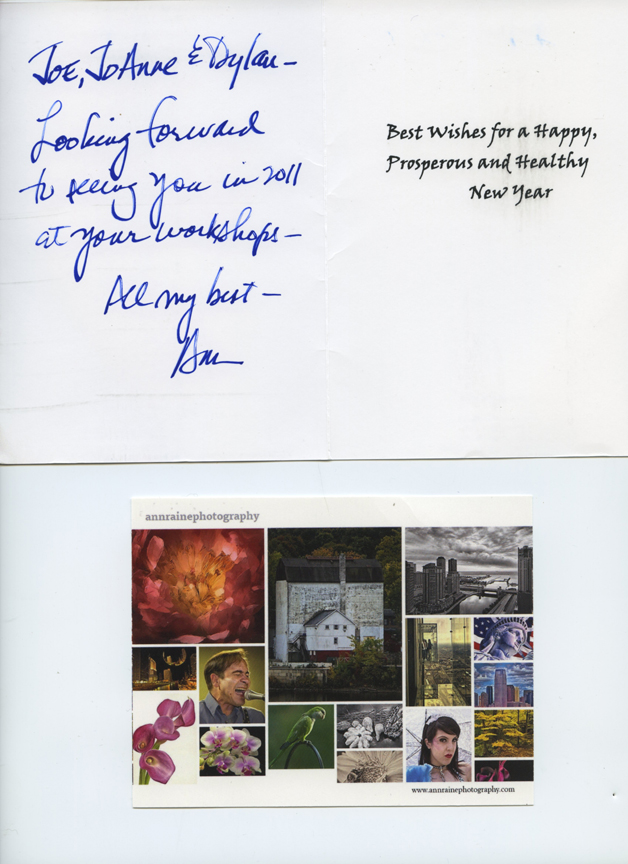 Joe, JoAnne & Dylan –
Looking forward
to seeing you in 2011
at your workshops –
All my best –
Ann
Best Wishes for a Happy,
Prosperous and Healthy
New Year
annrainephotography
www.annrainephotography.com